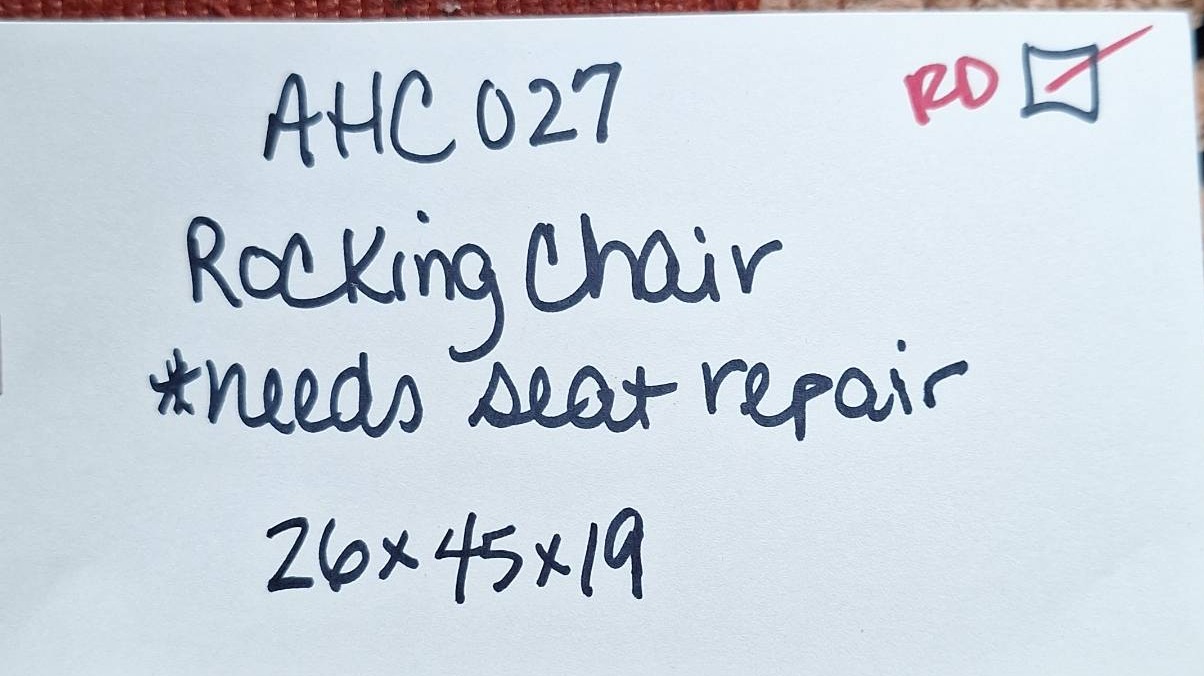 AHC 027
RD ☑
Rocking Chair
*needs seat repair
26x45x19